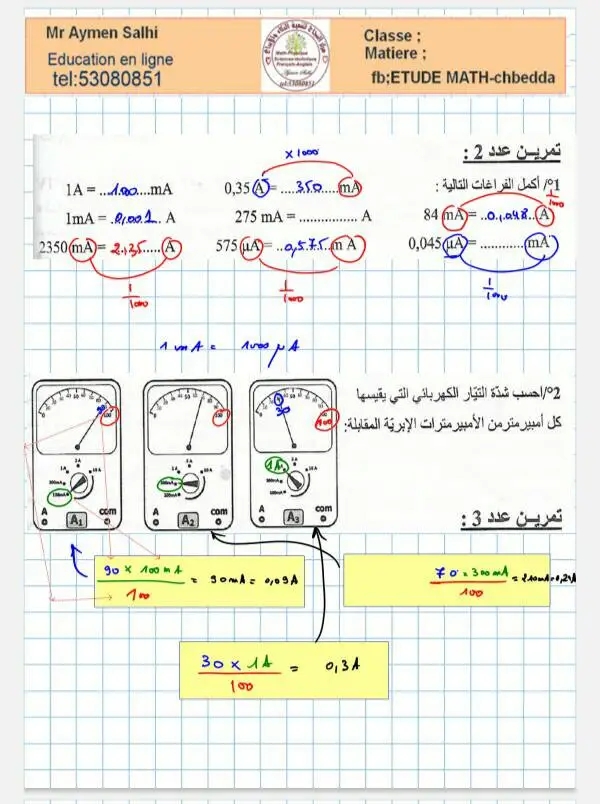 Mr Aymen Salhi
Education en ligne
tel:53080851
Classe ;
Matiere ;
fb;ETUDE MATH-chbedda
Math-Physique
Sciences-technique
Français-Anglais
Aymen Salhi
تمريـن عدد 2 :
1°/ أكمل الفراغات التالية :
x 1000
1/1000
1A = ...1.00....mA 0,35 A = ....350....mA 84 mA = ..0,048...A
1mA = ..0,001.. A 275 mA = ............... A 0,045 µA = ............mA
2350 mA = 2,35..... A 575 µA = ..0,575...m A
1/1000 1/1000 1/1000
1 mA = 1000 µA
2°/احسب شدّة التيّار الكهربائي التي يقيسها
كل أمبيرمتر من الأمبيرمترات الإبريّة المقابلة:
90 100 0 50 100 0 30 100
1A 3A 10A 300mA 100mA
1A 3A 10A 300mA 100mA
1A 3A 10A 300mA 100mA
A com A com A com
A1 A2 A3
تمريـن عدد 3 :
90 x 100 mA / 100 = 90 mA = 0,09A
70 x 300mA / 100 = 210mA=0,21A
30 x 1A / 100 = 0,3A